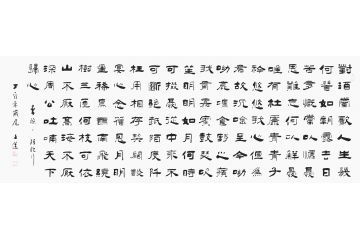 對酒當歌人生幾
何譬如朝露去日
苦多慨當以慷憂
思難忘何以解憂
唯有杜康青青子
衿悠悠我心但為
君故沉吟至今呦
呦鹿鳴食野之苹
我有嘉賓鼓瑟吹
笙明明如月何時
可掇憂從中來不
可斷絕越陌度阡
枉用相存契闊談
宴心念舊恩月明
星稀烏鵲南飛繞
樹三匝何枝可依
山不厭高海不厭
深周公吐哺天下
歸心 曹操 短歌行
丁酉年歲尾